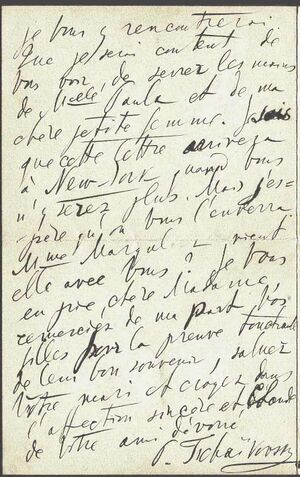 je vous y rencontrerai
Que je serai content de
vous voir, de serrer les mains
de Mselle Paula et de ma
chère petite femme. Je sais
que cette lettre arrivera
à New-York quand vous
n'y serez plus. Mais j'es-
père qu'on vous l'enverra.
Mme vient
elle avec Vous? Je Vous
en prie, chère Madame,
remerciez de ma part Vos
filles pour la preuve
de leur bon souvenir, saluez
Votre mari et croyez dans
l'affection sincère et chaude
de Votre ami dévoué
P. Tschaïkovsky